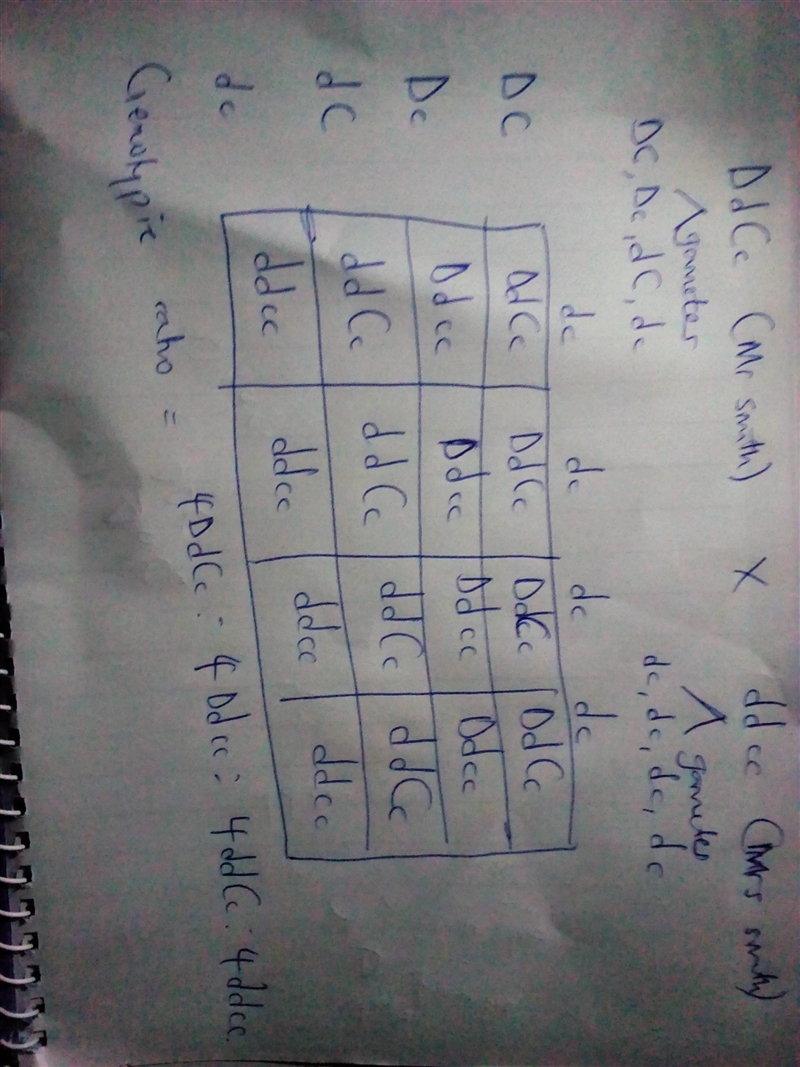 DdCc (Mr smith) X ddcc (Mrs smith)
gametes gametes
DC, Dc, dC, dc dc, dc, dc, dc
dc dc dc dc
DC DdCc DdCc DdCc DdCc
Dc Ddcc Ddcc Ddcc Ddcc
dC ddCc ddCc ddCc ddCc
dc ddcc ddcc ddcc ddcc
Genotypic ratio =
4DdCc : 4Ddcc : 4ddCc : 4ddcc.